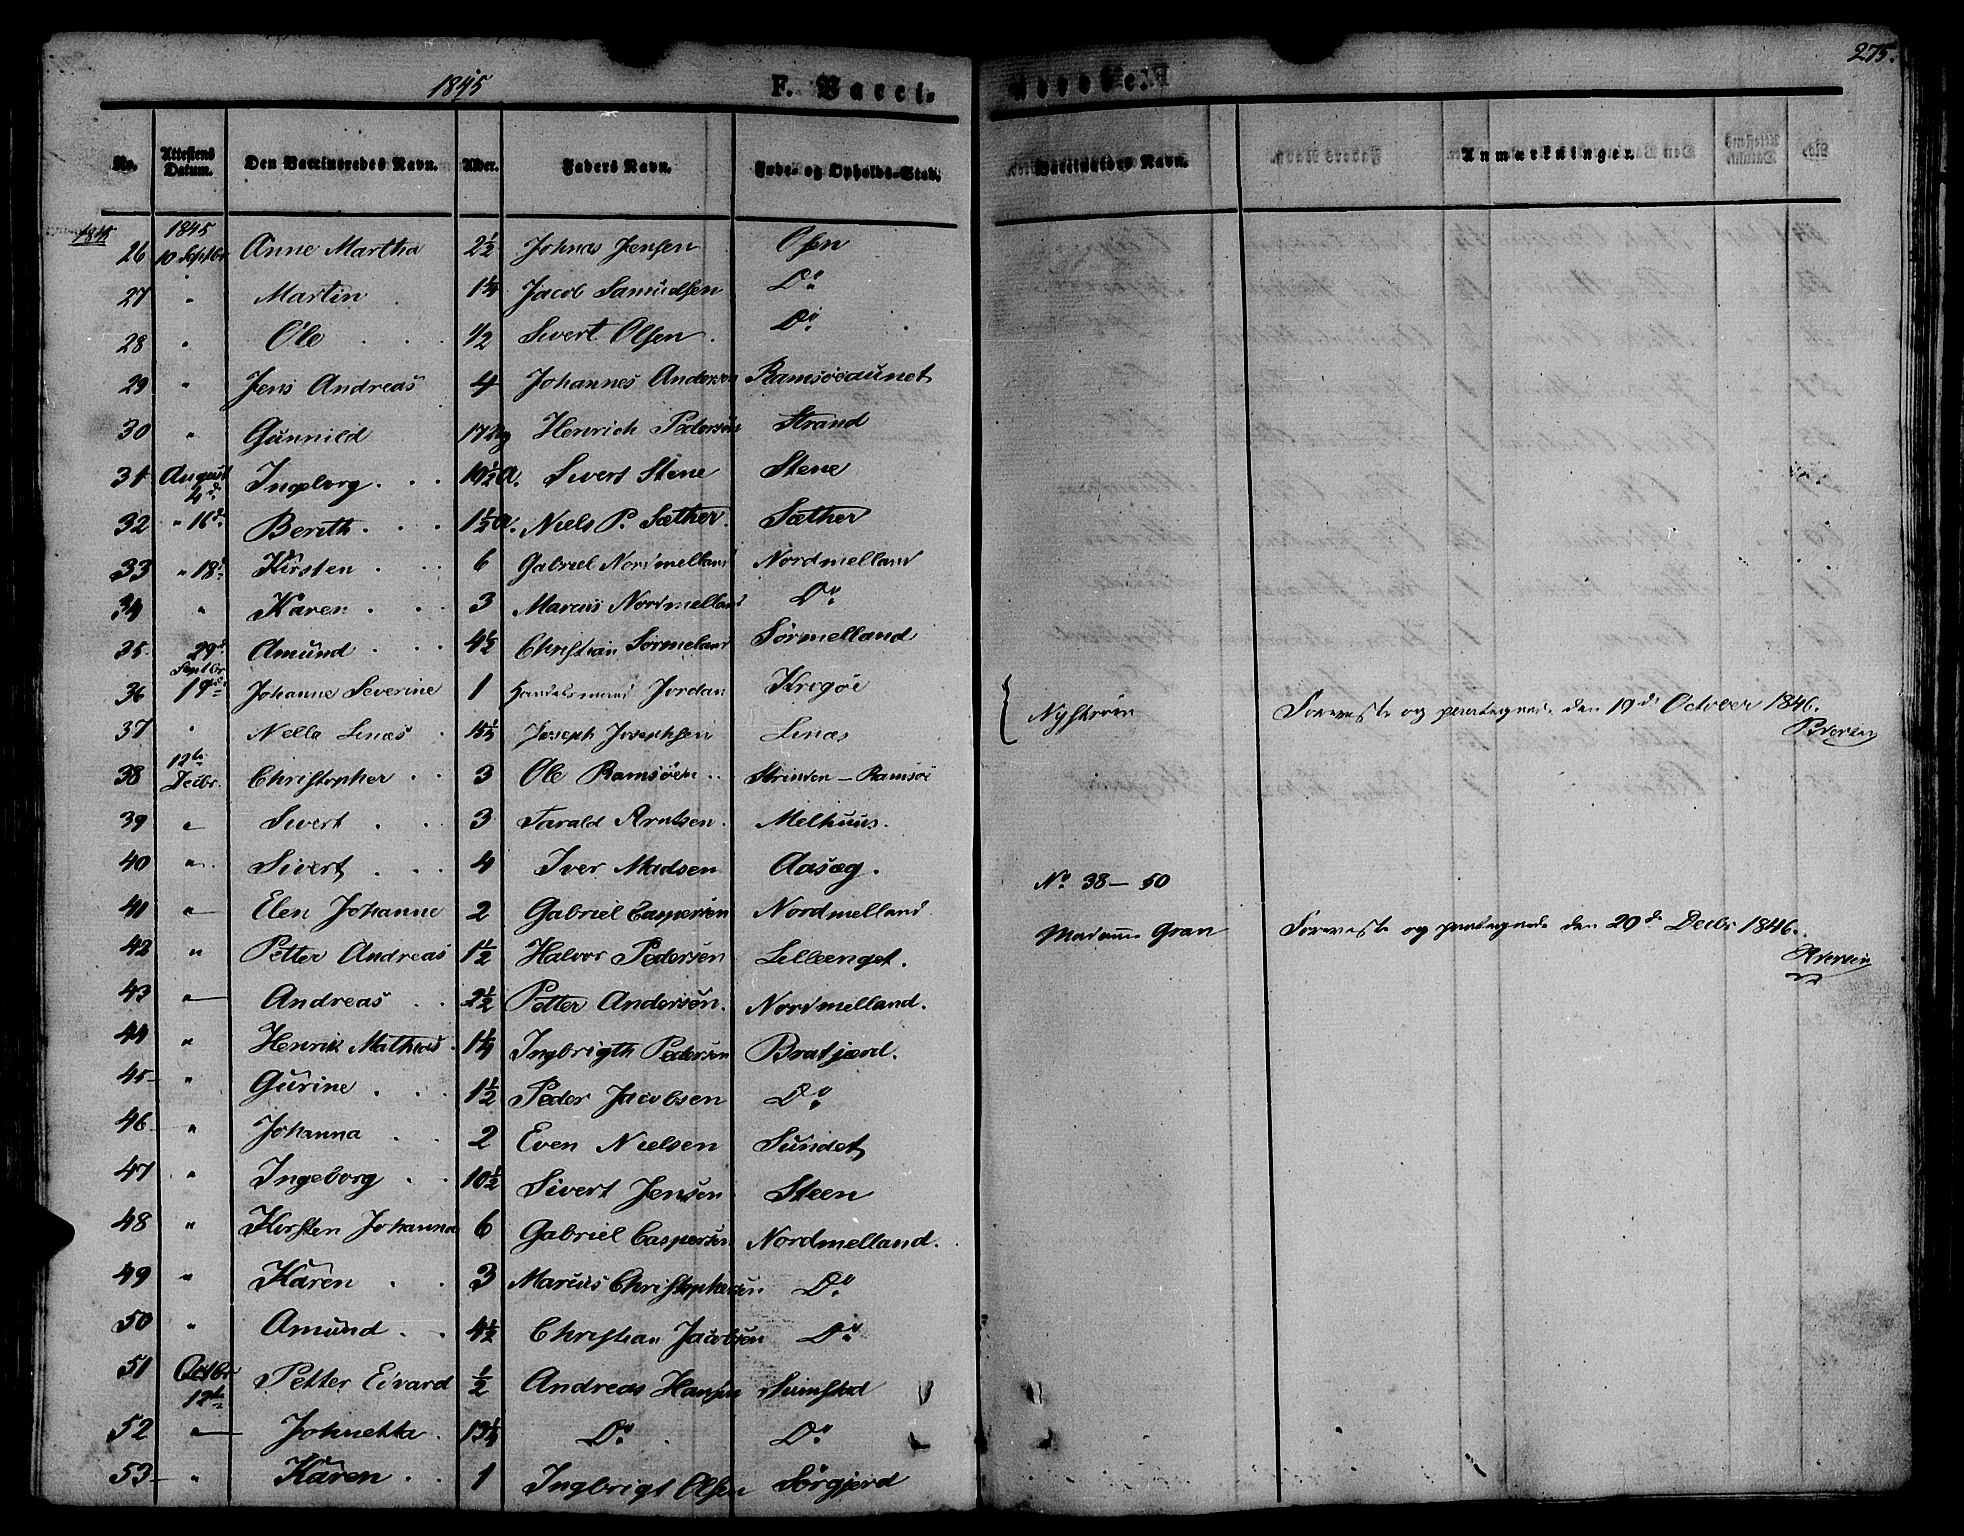 275.
1845 F. Vacci- nerede.
No. Attestens Datum. Den Vaccineredes Navn. Alder. Faders Navn. Føde- og Opholds-Sted. Vaccinators Navn. Anmærkninger.
1845 1845
26 10 Septbr Anne Martha 2½ Johnas Jensen Osen
27 " Martin 1¼ Jacob Samuelsen Do
28 " Ole 1/2 Sivert Olsen Do
29 " Jens Andreas 4 Johannes Andersen Ramsøeaunet
30 " Gunnild 17 Henrich Pedersen Strand
31 August 4d. Ingeborg 10½ A. Sivert Stene Stene
32 " 16d. Bereth 1½ A. Niels P. Sæther Sæther
33 " 18d. Kirsten 6 Gabriel Nordmelland Nordmelland
34 " Karen 3 Marcus Nordmelland Do
35 29d Amund 4½ Christian Sørmeland Sørmelland
36 Septbr 19de Johanne Severine 1 Handelsmand Jordan Krogøe
37 " Nella Linæs Joseph Josephsen Linæs
Nystrøm Foreviste og paategnede den 19d October 1846.
38 12te Decbr. Christopher 3 Ole Ramsøen Strinden - Ramsøe
39 " Sivert 3 Tarald Arntsen Melhuus.
40 " Sivert 4 Iver Madsen Aasæg.
No 38 - 50
41 " Elen Johanne 2 Gabriel Caspersen Nordmelland
42 " Petter Andreas 1½ Halvor Pedersen Lilleenget.
Madame Gran Foreviste og paategnede den 29d Decbr 1846.
43 " Andreas 2½ Petter Andersen. Nordmelland.
44 " Henrik Mathias 1¼ Ingbrigth Pedersen Bratjærd.
45 " Gurine 1½ Peder Jacobsen Do
46 " Johanna 2 Even Nielsen Sundet
47 " Ingeborg 10½ Sivert Jensen Steen
48 " Kirsten Johanna 6 Gabriel Caspersen Nordmelland.
49 " Karen 3 Marius Christophersen Do
50 " Amund 4½ Christian Jacobsen Do
51 Octbr 12te Petter Eivard ½ Andreas Hansen Sumstad
52 " Johnetta 13¼ Do Do
53 " Karen 1 Ingbrigt Olsen Sørgjerd